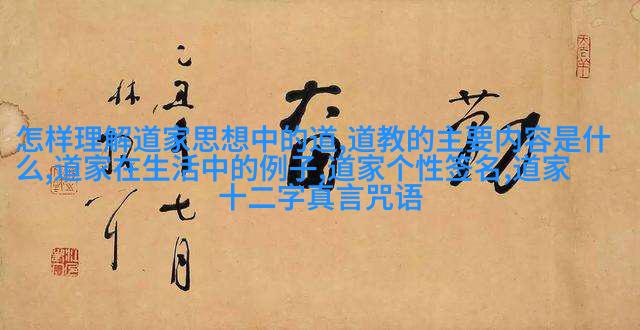 怎样理解道家思想中的道,道教的主要内容是什
么,道家在生活中的例子,道家个性签名,道家
十二字真言咒语
勤
乙丑年七月
林